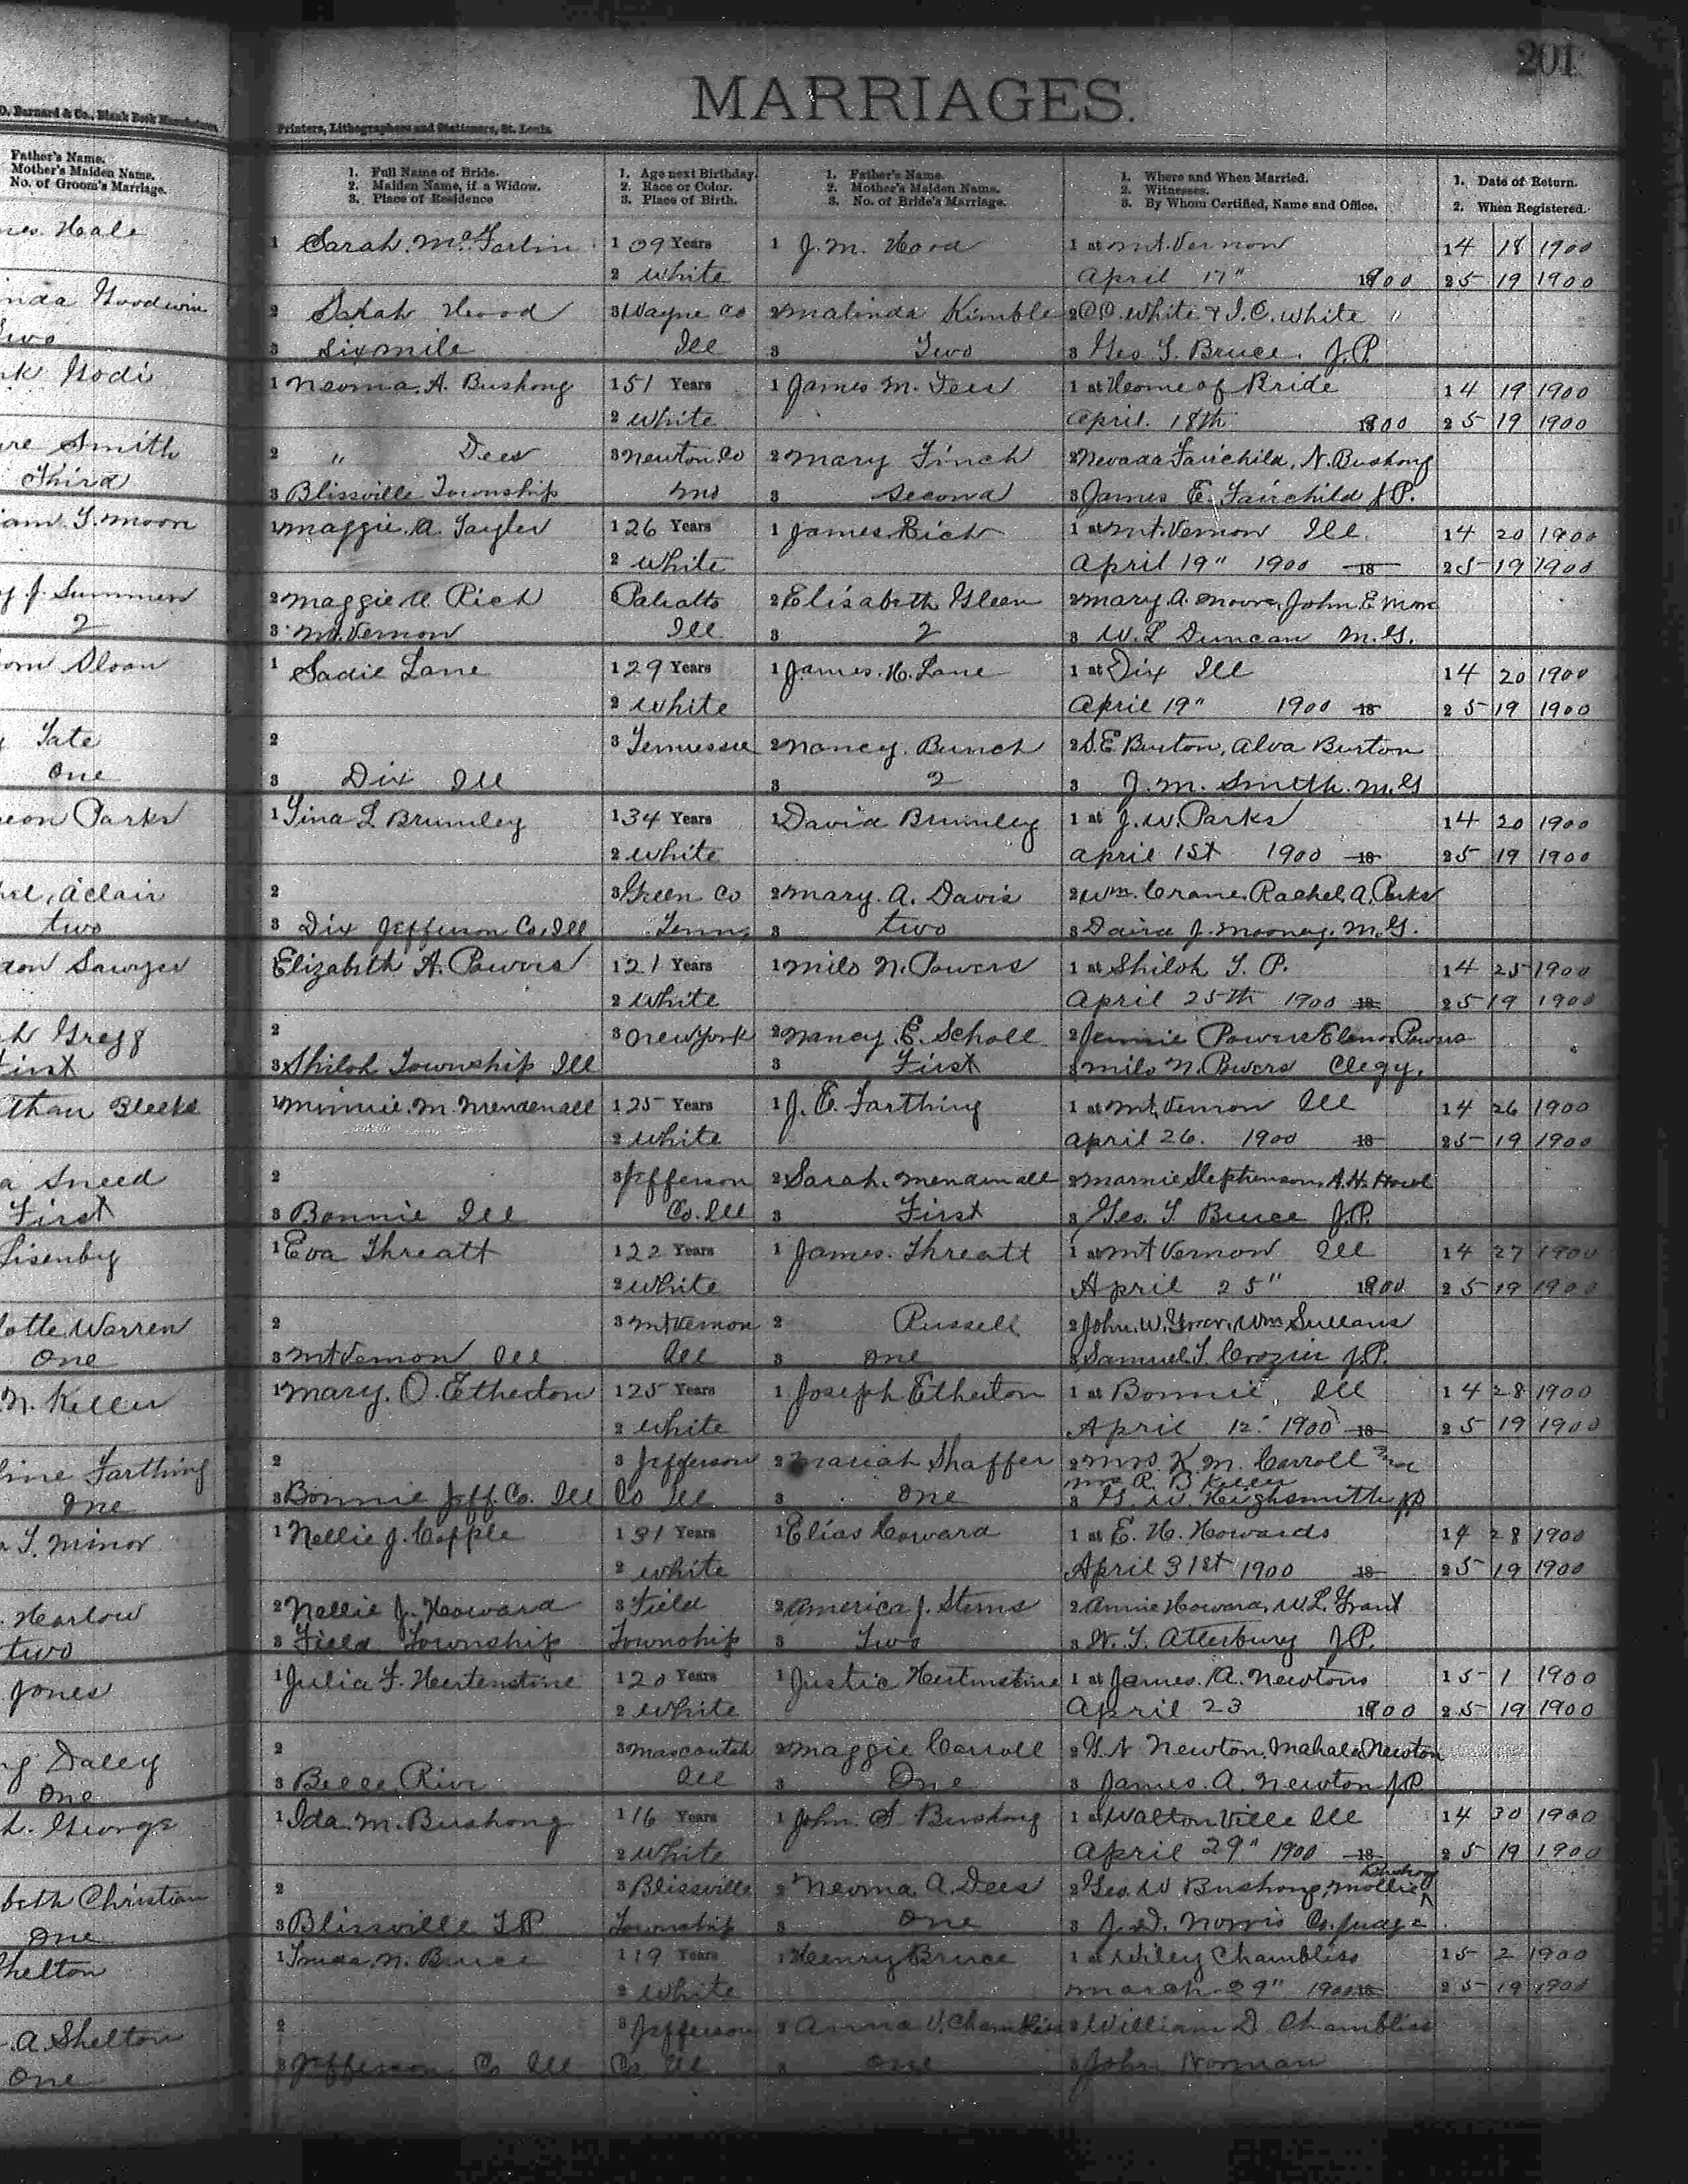 201
MARRIAGES.
D. Barnard & Co., Blank Book Manufacturers,
Printers, Lithographers and Stationers, St. Louis.
Father's Name.
Mother's Maiden Name.
No. of Groom's Marriage.
1. Full Name of Bride.
2. Maiden Name, if a Widow.
3. Place of Residence
1. Age next Birthday.
2. Race or Color.
3. Place of Birth.
1. Father's Name.
2. Mother's Maiden Name.
3. No. of Bride's Marriage.
1. Where and When Married.
2. Witnesses.
3. By Whom Certified, Name and Office.
1. Date of Return.
2. When Registered.
Hale
1 Sarah McFarlin 1 39 Years 1 J. M. Hood 1 at Mt. Vernon 1 4 18 1900
2 White April 17" 1900 2 5 19 1900
inda Goodwin 2 Sarah Hood 3 Wayne Co 2 Malinda Kimble 2 C.C. White & I.C. White
two 3 Sixmile Ill 3 Two 3 Geo T. Bruce. J.P.
1 Neoma. A. Bushong 1 51 Years 1 James M. Dees 1 at Home of Bride 1 4 19 1900
2 White April. 18th 1900 2 5 19 1900
Smith 2 " Dees 3 Newton Co 2 Mary Finch 2 Nevada Fairchild, N. Bushong
Third 3 Blissville Township Mo 3 Second 3 James E. Fairchild J.P.
iam. T. Moon 1 Maggie. A. Taylor 1 26 Years 1 James Rich 1 at Mt. Vernon Ill. 1 4 20 1900
2 White April 19" 1900 18 2 5 19 1900
y J. Summers 2 Maggie A. Rich Palralto 2 Elisabeth Gleen 2 Mary A. Moore, John E Moore
2 3 Mt. Vernon Ill 3 2 3 W. L Duncan M.G.
Sloan 1 Sadie Lane 1 29 Years 1 James. H. Lane 1 at Dix Ill 1 4 20 1900
2 White April 19" 1900 18 2 5 19 1900
Tate 2 3 Tennessee 2 Nancy. Bunch 2 S.E Burton, Alva Burton
One 3 Dix Ill 3 2 3 J. M. Smith. M.G
eon Parks 1 Tina L Brumley 1 34 Years 1 David Brumley 1 at J. W. Parks 1 4 20 1900
2 White April 1st 1900 18 2 5 19 1900
2 3 Green Co 2 Mary. A. Davis 2 Wm. Crane, Rachel A. Parks
two 3 Dix Jefferson Co, Ill Tenn, 3 two 3 David J. Mooney. M.G.
don Sawyer Elizabeth A. Powers 1 21 Years 1 Milo N. Powers 1 at Shiloh T. P. 1 4 25 1900
2 White April 25th 1900 18 2 5 19 1900
Gregg 2 3 New York 2 Nancy E. Scholl 2 Jennie Powers Elenor Powers
First 3 Shiloh Township Ill 3 First 3 Milo N. Powers Clegy.
than Bleeks 1 Minnie. M. Mendenall 1 25 Years 1 J. E. Farthing 1 at Mt. Vernon Ill 1 4 26 1900
2 White April 26. 1900 18 2 5 19 1900
a Sneed 2 3 Jefferson 2 Sarah. Mendenall 2 Marnie Stephenson, A.H. Howl
First 3 Bonnie Ill Co. Ill 3 First 3 Geo. T Bruce J.P.
Lisenby 1 Eva Threatt 1 22 Years 1 James. Threatt 1 at Mt Vernon Ill 1 4 27 1900
2 White April 25" 1900 2 5 19 1900
lotte. Warren 2 3 Mt Vernon 2 Russell 2 John. W. Wm Sullans
One 3 Mt Vernon Ill Ill 3 One 3 Samuel. T. Crozier J.P.
N. Keller 1 Mary. O. Etherton 1 25 Years 1 Joseph Etherton 1 at Bonnie, Ill 1 4 28 1900
2 White April 12. 1900 18 2 5 19 1900
line Farthing 2 3 Jefferson 2 Mariah Shaffer 2 Mrs K. M. Carroll and
Mrs R. B Keller
One 3 Bonnie Jeff. Co. Ill Co Ill 3 One 3 G. W. Heighsmith J.P.
T. Minor 1 Nellie J. Copple 1 31 Years 1 Elias Coward 1 at E. H. Howards 1 4 28 1900
2 White April 31st 1900 18 2 5 19 1900
Harlow 2 Nellie J. Howard 3 Field 2 America J. Sterns 2 Annie Howard, W. L. Grant
two 3 Field Township Township 3 Two 3 W. T. Atterbury J.P.
Jones 1 Julia F. Hertenstine 1 20 Years 1 Justic Hertenstine 1 at James. A. Newtons 1 5 1 1900
2 White April 23 1900 2 5 19 1900
Daley 2 3 Mascoutah 2 Maggie Carroll 2 G. N Newton, Mahala Newton
One 3 Belle Rive Ill 3 One 3 James. A. Newton J.P.
George 1 Ida. M. Bushong 1 16 Years 1 John S Bushong 1 at Waltonville Ill 1 4 30 1900
2 White April 29" 1900 18 2 5 19 1900
Bushong
beth Christian 2 3 Blissville 2 Neoma A. Dees 2 Geo. W Bushong, Mollie ^
One 3 Blissville T.P. Township 3 One 3 J. D. Norris Co. Judge
Shelton 1 N. Bruce 1 19 Years 1 Henry Bruce 1 at Wiley Chambliss 1 5 2 1900
2 White March 29" 1900 18 2 5 19 1900
A. Shelton 2 3 Jefferson 2 Anna V. Chambliss 2 William D Chambliss
One 3 Jefferson Co Ill Co Ill 3 One 3 John Norman